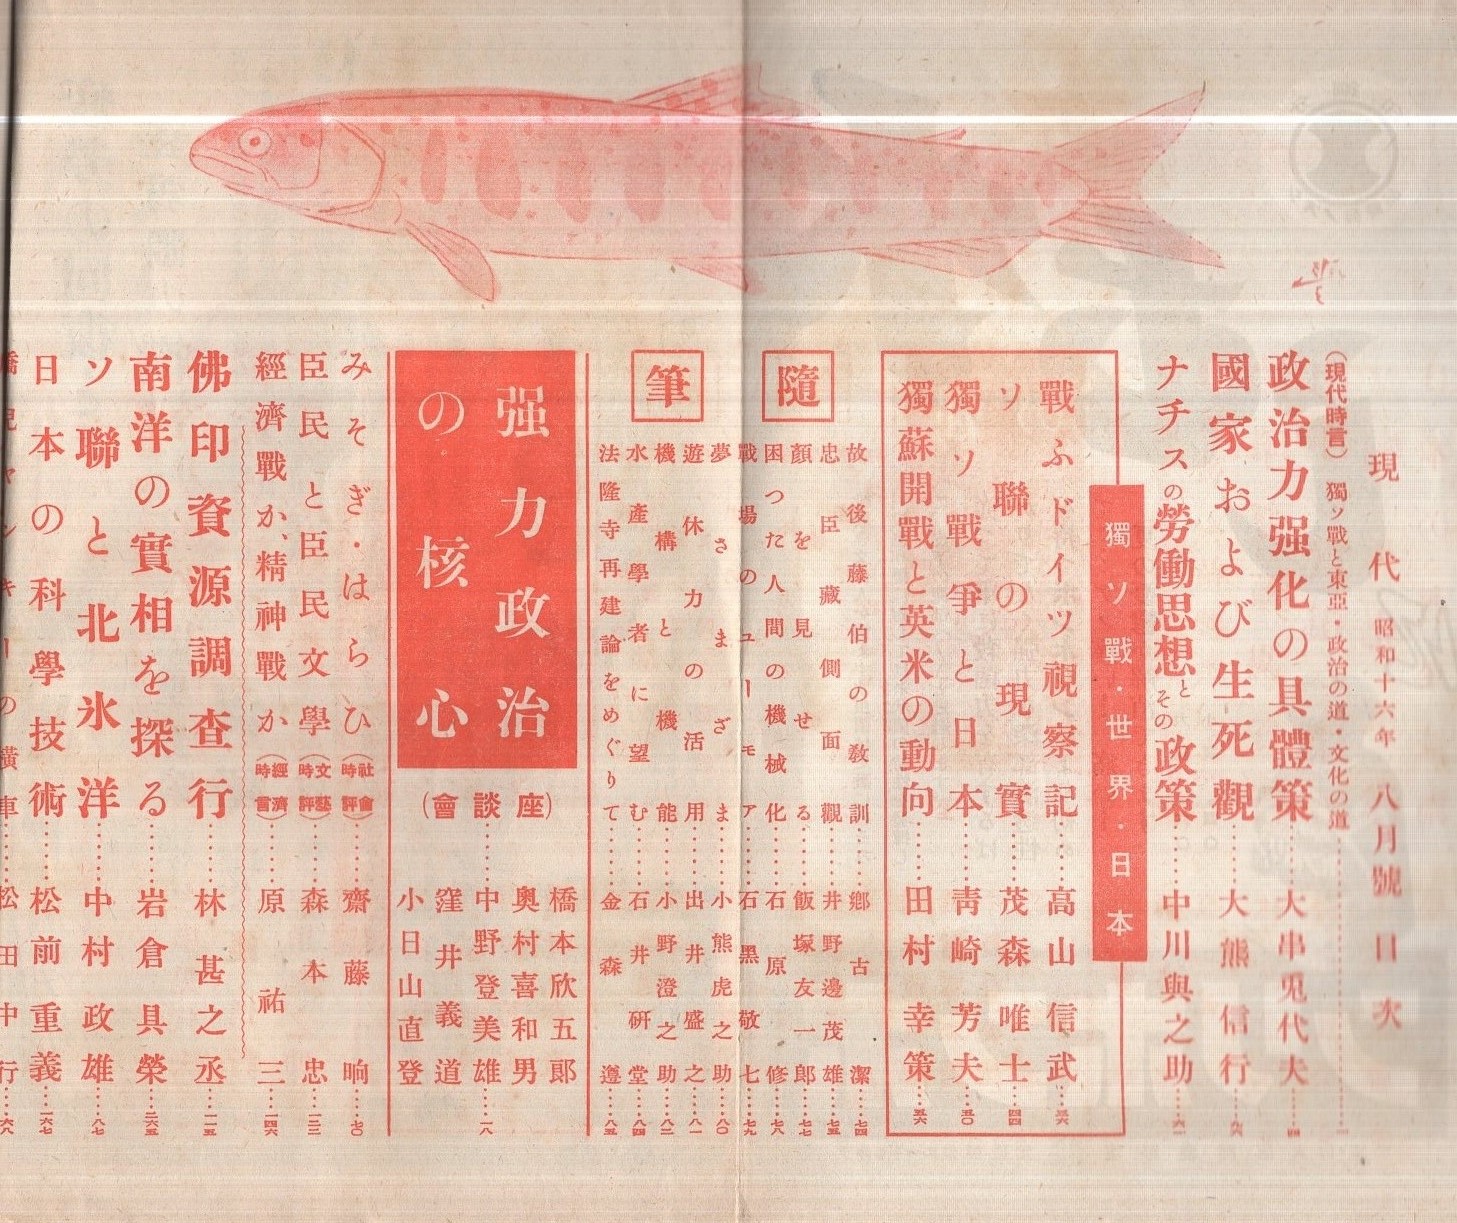 現代 昭和十六年 八月號 目次
(現代時言) 獨ソ戰と東亞・政治の道・文化の道……一
政治力强化の具體策……大串兎代夫…四
國家および生死觀……大熊信行
ナチスの勞働思想とその政策……中川與之助
獨ソ戰・世界・日本
戰ふドイツ視察記……高山信武…三六
ソ聯の現實……茂森唯士…四四
獨ソ戰爭と日本……靑崎芳夫…五〇
獨蘇開戰と英米の動向……田村幸策…五六
隨筆
故後藤伯の敎訓……鄕古潔…七四
忠臣藏側面觀……井野邊茂雄…七五
顏を見せる……飯塚友一郎…七七
困つた人間の機械化……石原修…七九
戰場のユーモア……石黑敬七
夢さまざま……小熊虎之助…八〇
遊休力の活用……出井盛之…八一
機構と機能……小野澄之助…八二
水產學者に望む……石井硏堂…八四
法隆寺再建論をめぐりて……金森遵…八五
强力政治の核心
(座談會)
橋本欣五郎
奧村喜和男
中野登美雄…一八
窪井義道
小日山直登
みそぎ・はらひ(社會時評)……齋藤晌…七〇
臣民と臣民文學(文藝時評)……森本忠…一二二
經濟戰か、精神戰か(經濟時言)……原祐三…一四六
佛印資源調查行……林甚之丞…一一五
南洋の實相を探る……岩倉具榮…二六五
ソ聯と北氷洋……中村政雄…八七
日本の科學技術……松前重義…一六七
橋兒ヤンキーの橫車……松田中行…一六八